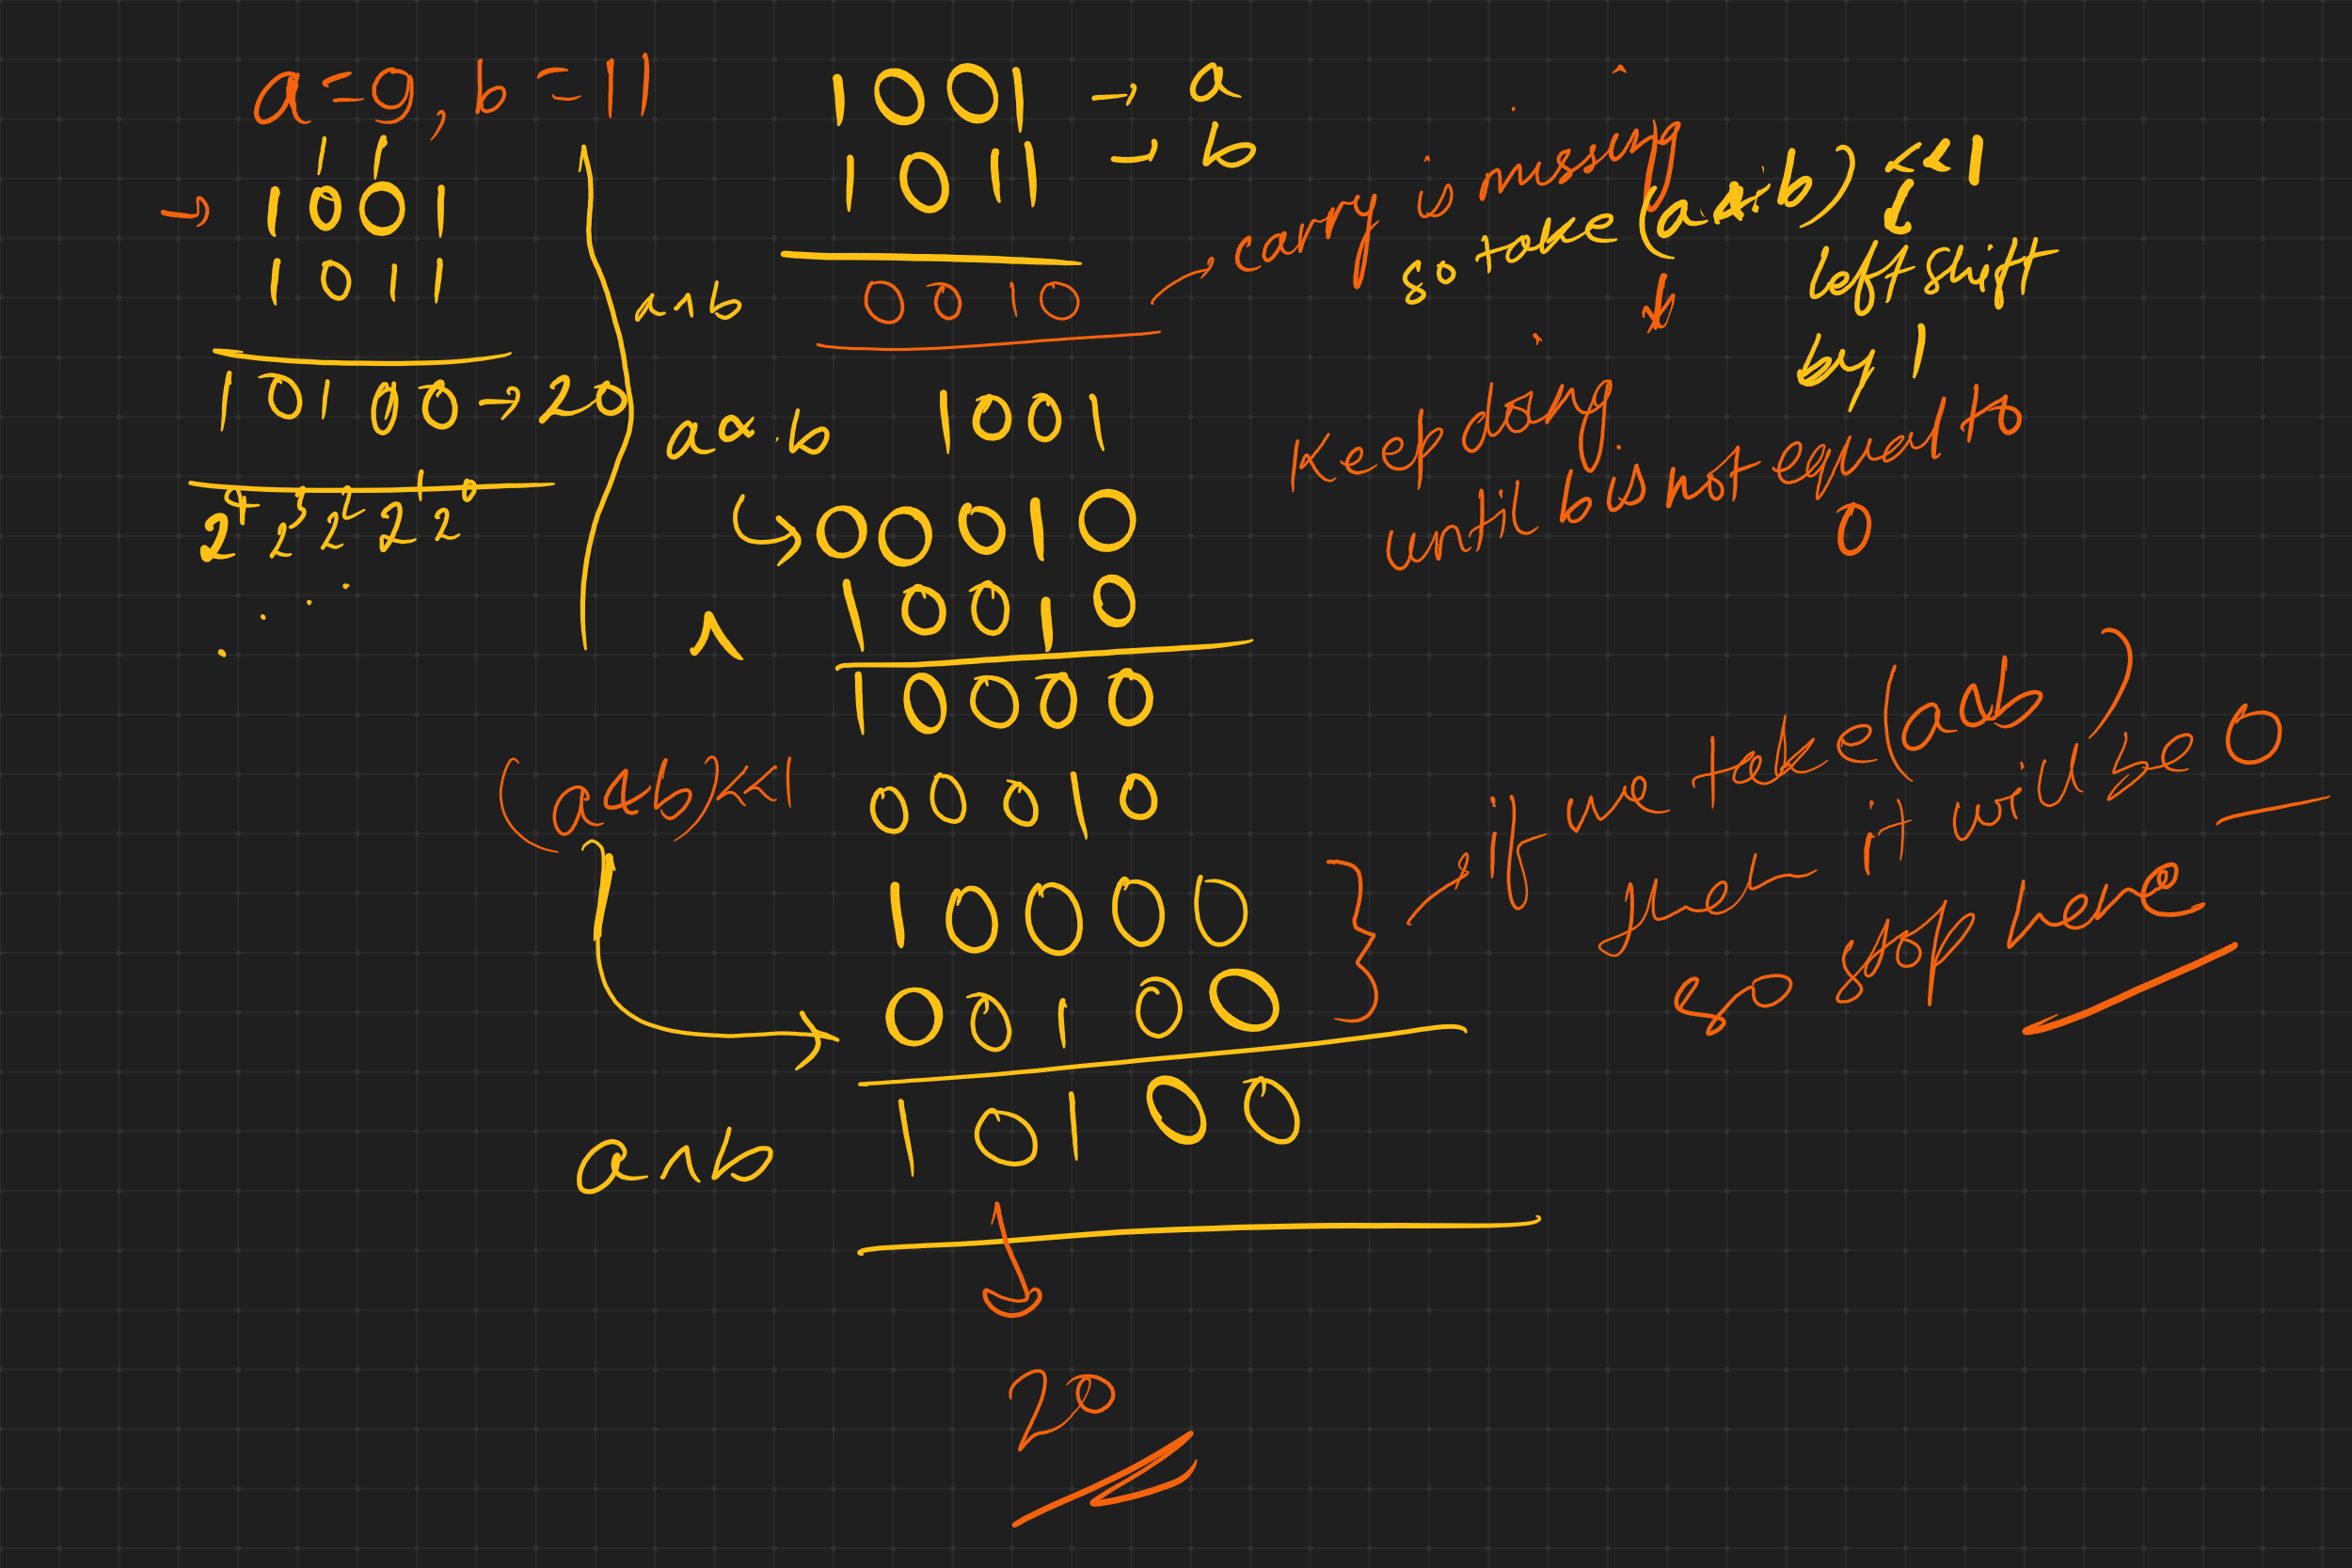 a = 9, b = 11
1 1
→ 1001
1011
10100 → 20
2⁴ 2³ 2² 2¹ 2⁰
1001 → a
1011 → b
a^b 0010 → carry is missing
so take (a & b) << 1
left shift
by 1
Keep doing
until b is not equal to
0
a & b 1001
00010
^ 10010
10000
(a&b)<<1 00010
10000
00100
if we take (a&b)
then it will be 0
so stop here
a^b 10100
20